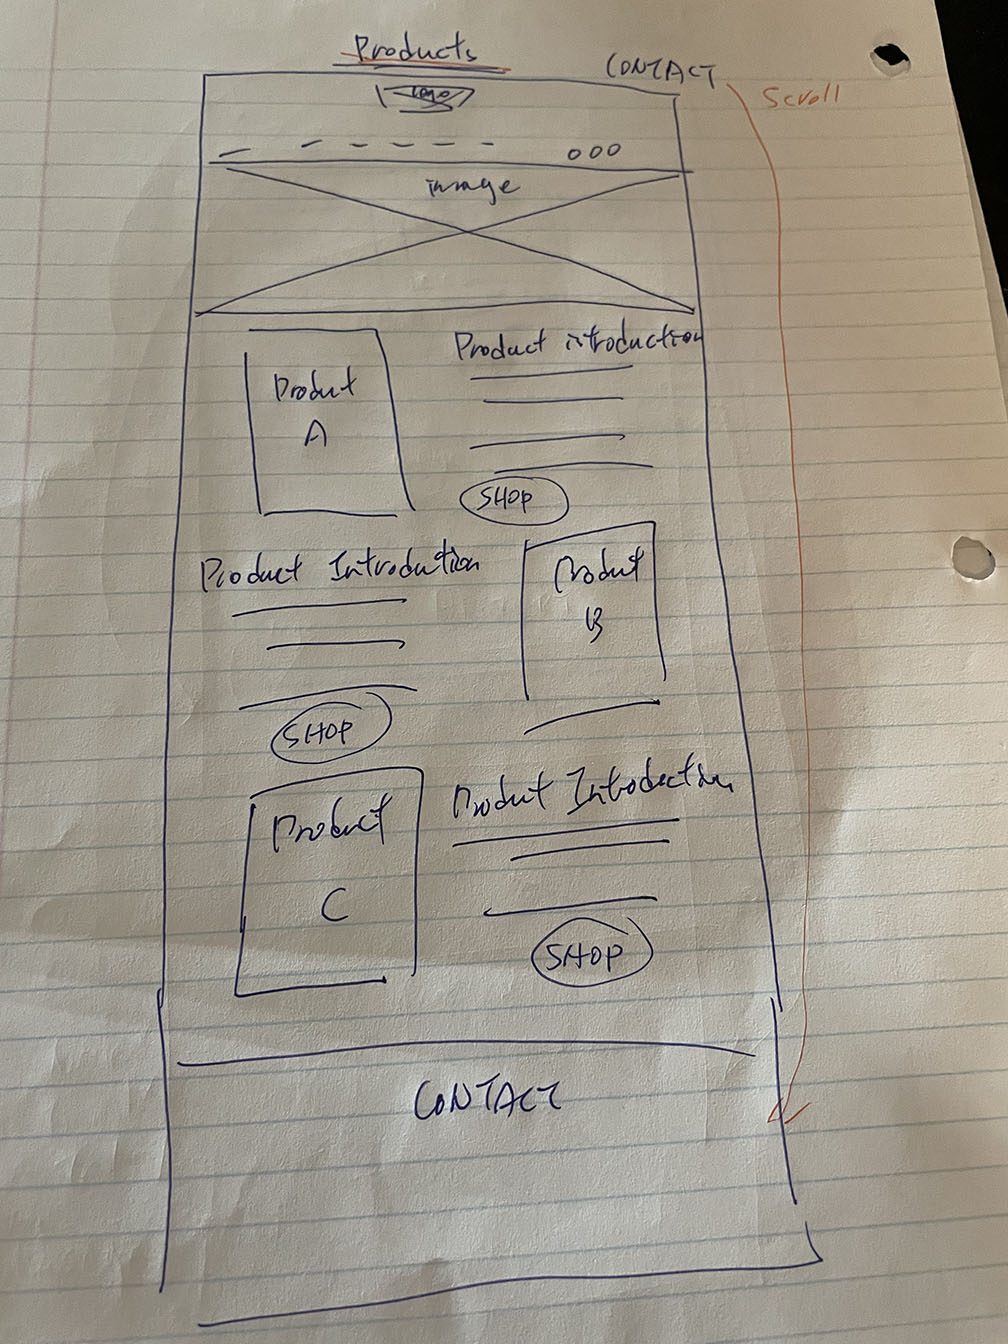 Products
CONTACT
Scroll
Logo
image
Product introduction
Product
A
SHOP
Product Introduction
Product
B
SHOP
Product Introduction
Product
C
SHOP
CONTACT